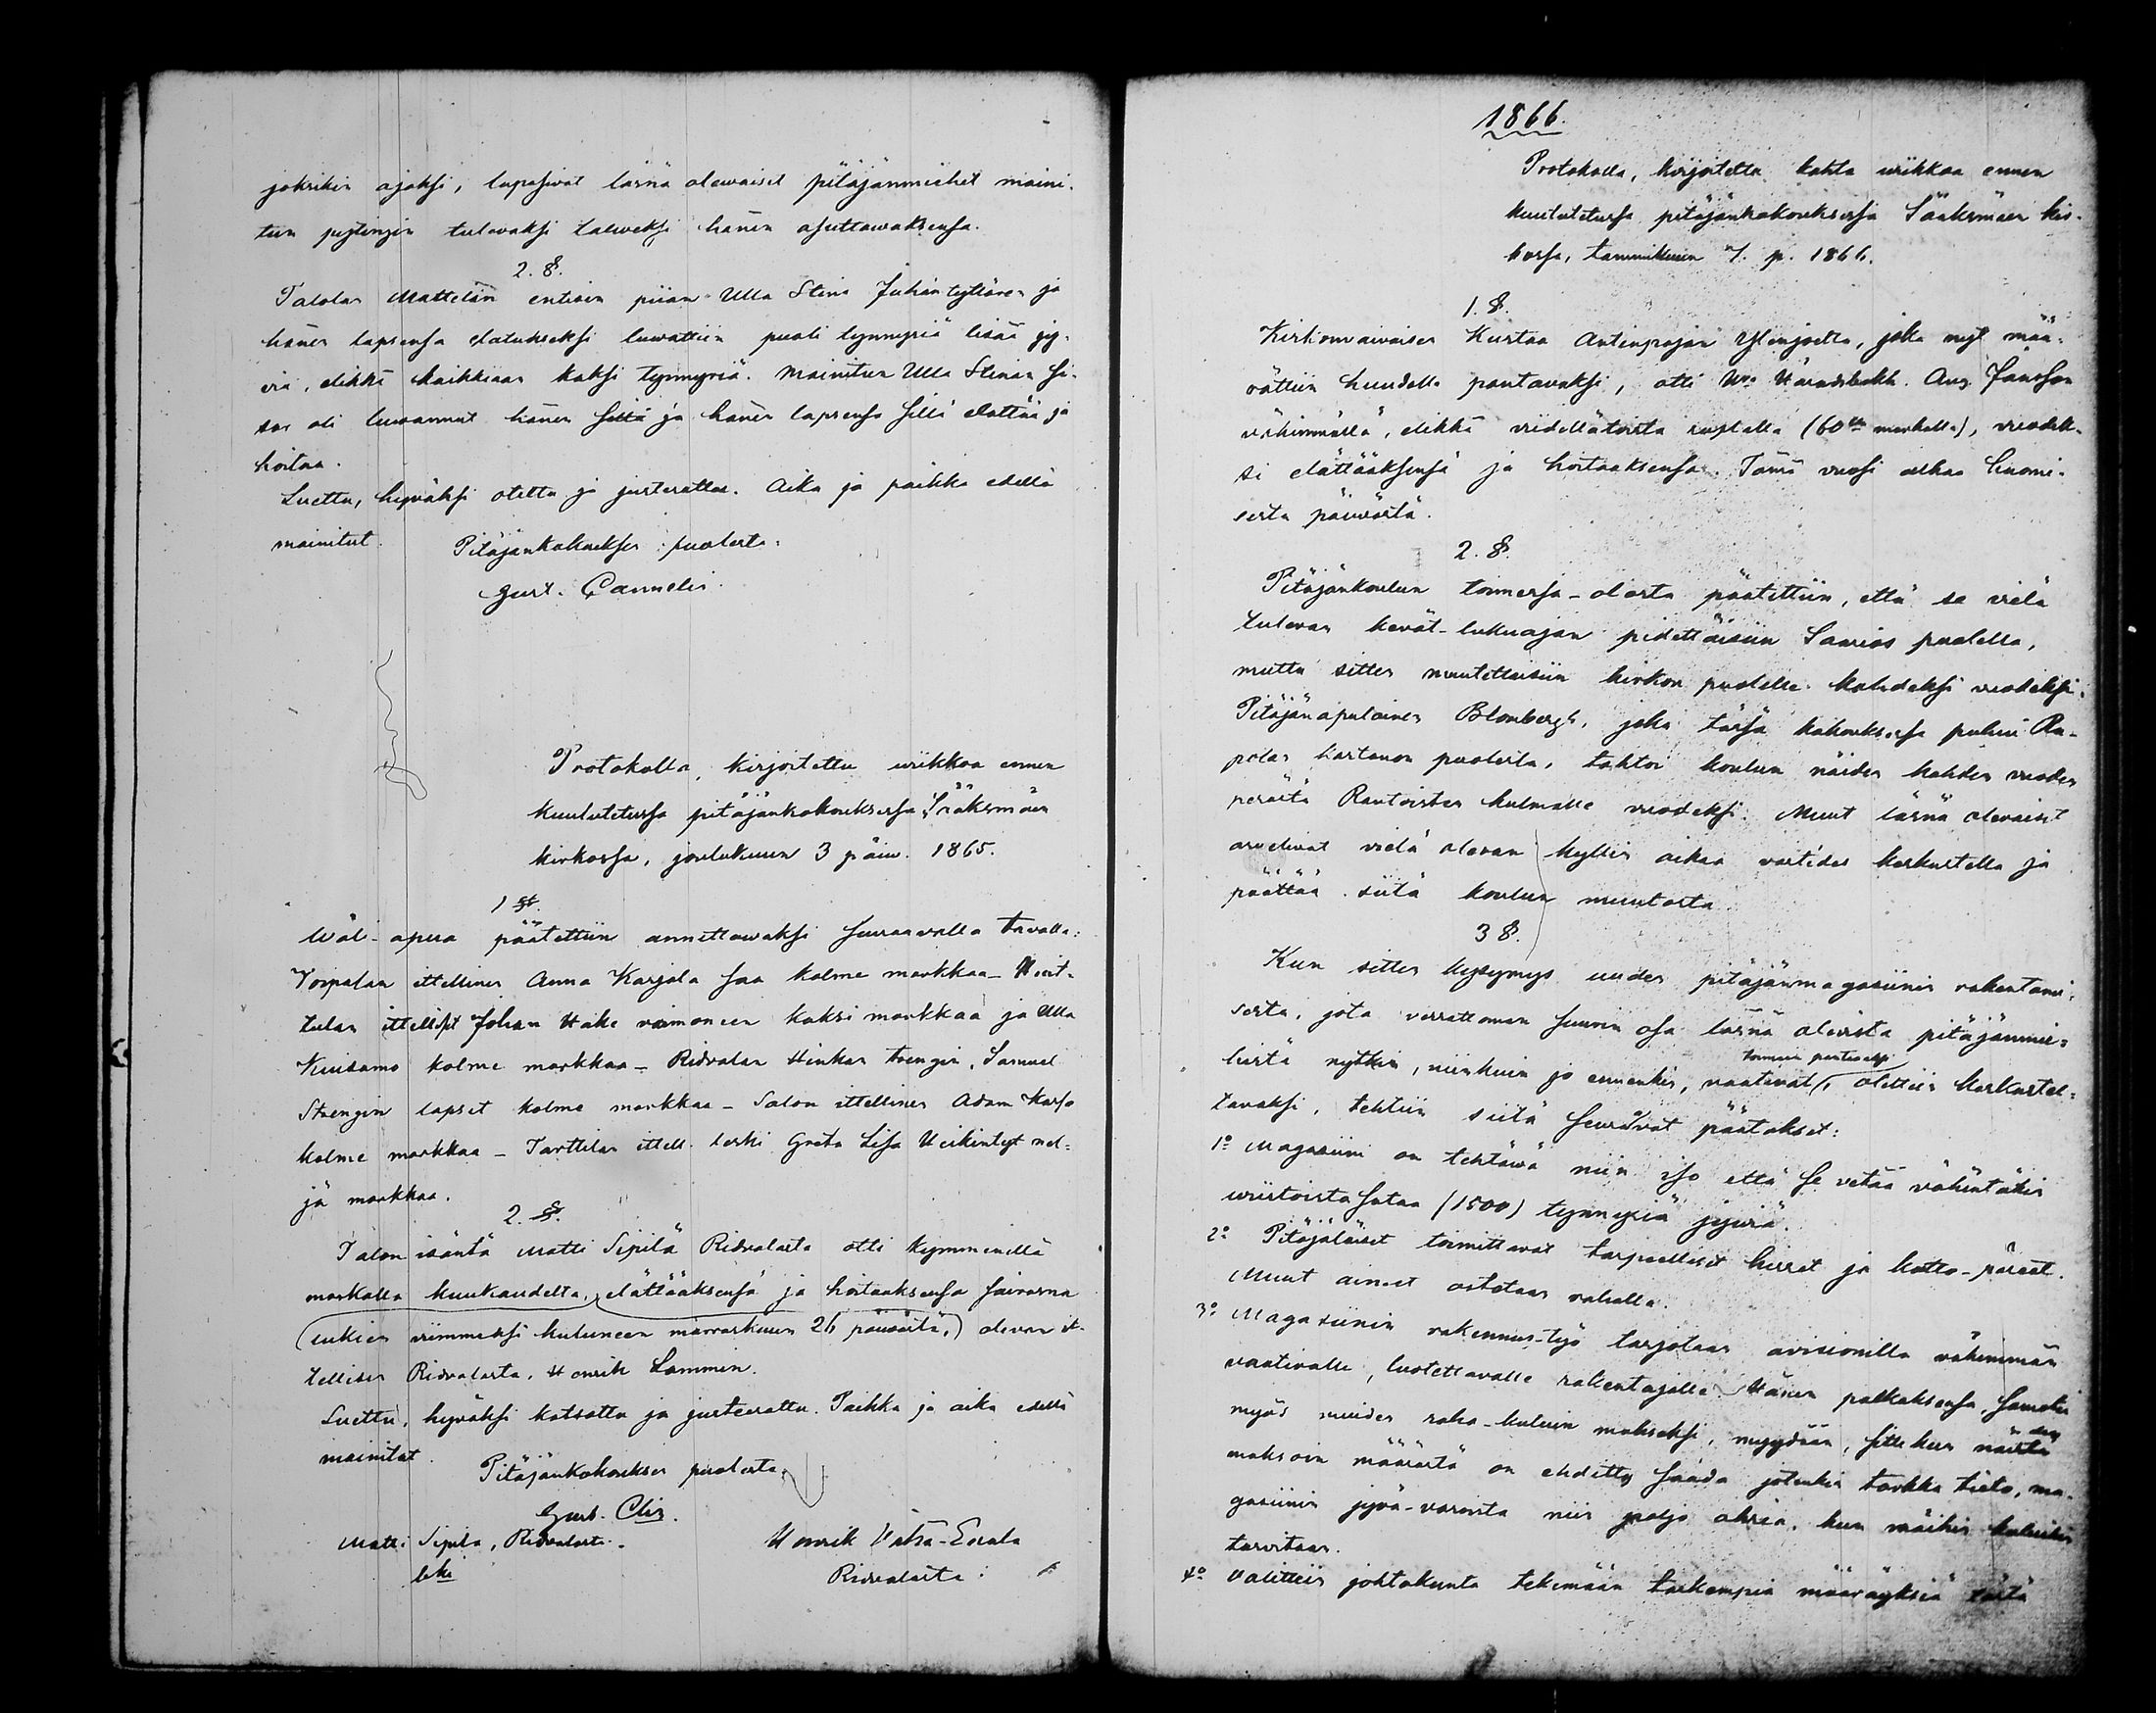 joksikin ajaksi, lupasivat läsnä olewaiset pitäjänmiehet maini-
tun tulevaksi talweksi hänen asuttawaksensa.
2. §.
Talolan Mattelän entisen piian Ulla Stina Juhantyttären ja
hänen lapsensa elatukseksi luwattiin puoli tynnyriä lisää jy-
viä, elikkä kaikkiaan kaksi tynnyriä. Mainitun Ulla Stinan si-
sar oli luwannut hänen ja hänen lapsensa sillä elättää ja
hoitaa.
Luettu, hyväksi otettu ja justerattu. Aika ja paikka edellä
mainitut.
Pitäjänkokouksen puolesta:
Gust. Cannelin.
Protokolla, kirjoitettu wiikkoa ennen
kuulutetussa pitäjänkokouksessa Sääksmäen
kirkossa, joulukuun 3 päiw. 1865.
1 §.
Wäl-apua päätettiin annettawaksi seuraavalla tavalla:
Voipalan ittellinen Anna Karjala saa kolme markkaa -
tulan ittellist Johan Hake vaimoneen kaksi markkaa ja Ulla
Kuusamo kolme markkaa - Ridvalan Hinkan trengin, Samuel
Strengin lapset kolme markkaa - Salon ittellinen Adam Karso
kolme markkaa - Tarttilan ittell. leski Greta Lisa Heikintyt nel-
jä markkaa.
2. §.
Talon isäntä Matti Sipilä Ridvalasta otti kymmenellä
markalla kuukaudelta, elättääksensä ja hoitaaksensa sairasna
(lukien viimmeksi kuluneen marraskuun 26 päivästä,) olevan it-
tellisen Ridvalasta, Henrik Lammin.
Luettu, hyväksi katsottu ja justeerattu. Paikka ja aika edellä
mainitut.
Pitäjänkokouksen puolesta:
Gust. Clin.
Matti Sipilä, Ridvalasta. Henrik Vähä-Eerala
Ridvalasta.
1866.
Protokolla, kirjoitettu kahta wiikkoa ennen
kuulutetussa pitäjänkokouksessa Sääksmäen kir-
kossa, tammikuun 7. p. 1866.
1. §.
Kirkonvaivaisen Kustaa Antinpojan Ylenjoelta, joka nyt mää-
rättiin huudolla pantavaksi, otti Aug. Jansson
vähimmällä, elikkä viidellätoista ruplalla (60 markalla), vuodek-
si elättääksensä ja hoitaaksensa. Tämä vuosi alkaa huomi-
sesta päiwästä.
2. §.
Pitäjänkoulun toimessa-olosta päätettiin, että se vielä
tulevan kevät-lukuajan pidettäisiin Saarios puolella,
mutta sitten muutettaisiin kirkon puolelle kahdeksi vuodeksi.
Pitäjänapulainen Blombergh, joka tässä kokouksessa puhui Ra-
polan kartanon puolesta, tahtoi koulun näiden kahden vuoden
perästä Rautoisten kulmalle vuodeksi. Muut läsnä olevaiset
arvelivat vielä olevan kyllin aikaa vastedes keskustella ja
päättää siitä koulun muutosta.
3 §.
Kun sitten kysymys uuden pitäjänmagasiinin rakentami-
sesta, jota verrattoman suurin osa läsnä olevista pitäjänmie-
histä nytkin, niinkuin jo ennenkin, vaativat toimeen pantavaksi, otettiin keskustel-
tavaksi, tehtiin siitä seuraavat päätökset:
1° Magasiini on tehtäwä niin iso että se vetää vähintäkin
wiisitoista sataa (1500) tynnyriä jywiä.
2° Pitäjäläiset toimittavat tarpeelliset hirret ja katto-päreet.
Muut aineet ostetaan rahalla.
3° Magasiinin rakennus-työ tarjotaan avisionilla vähimmän
vaativalle, luotettavalle rakentajalle. Hänen palkaksensa, samoten
myös muiden raha-kulujen maksoksi, myydään, sitte kun näiden
maksoin määrästä on ehditty saada jotenkin tarkka tieto, ma-
gasiinin jyvä-varoista niin paljo ohria, kun näihin kuluihin
tarvitaan.
4° Valittiin johtokunta tekemään tarkempia määräyksiä tästä